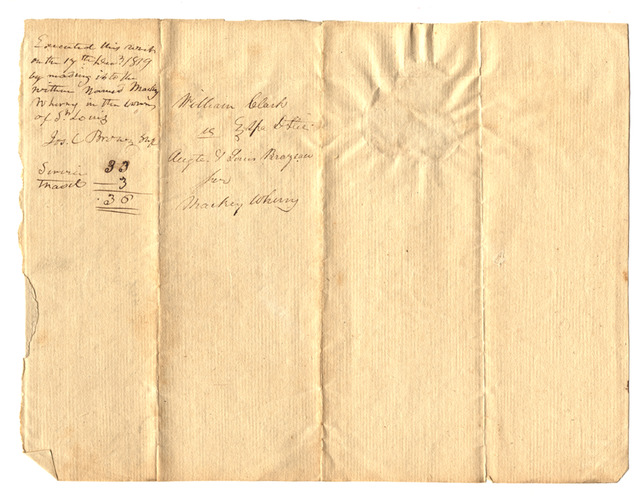 Executed this writ
on the 17th Decr 1819
by reading it to the
within Named Mackey
Wherry in the town
of St Louis
Jos. C. Brown Shff
Service 33
Travel 3
36
William Clark
vs
Louis
for
Mackey Wherry